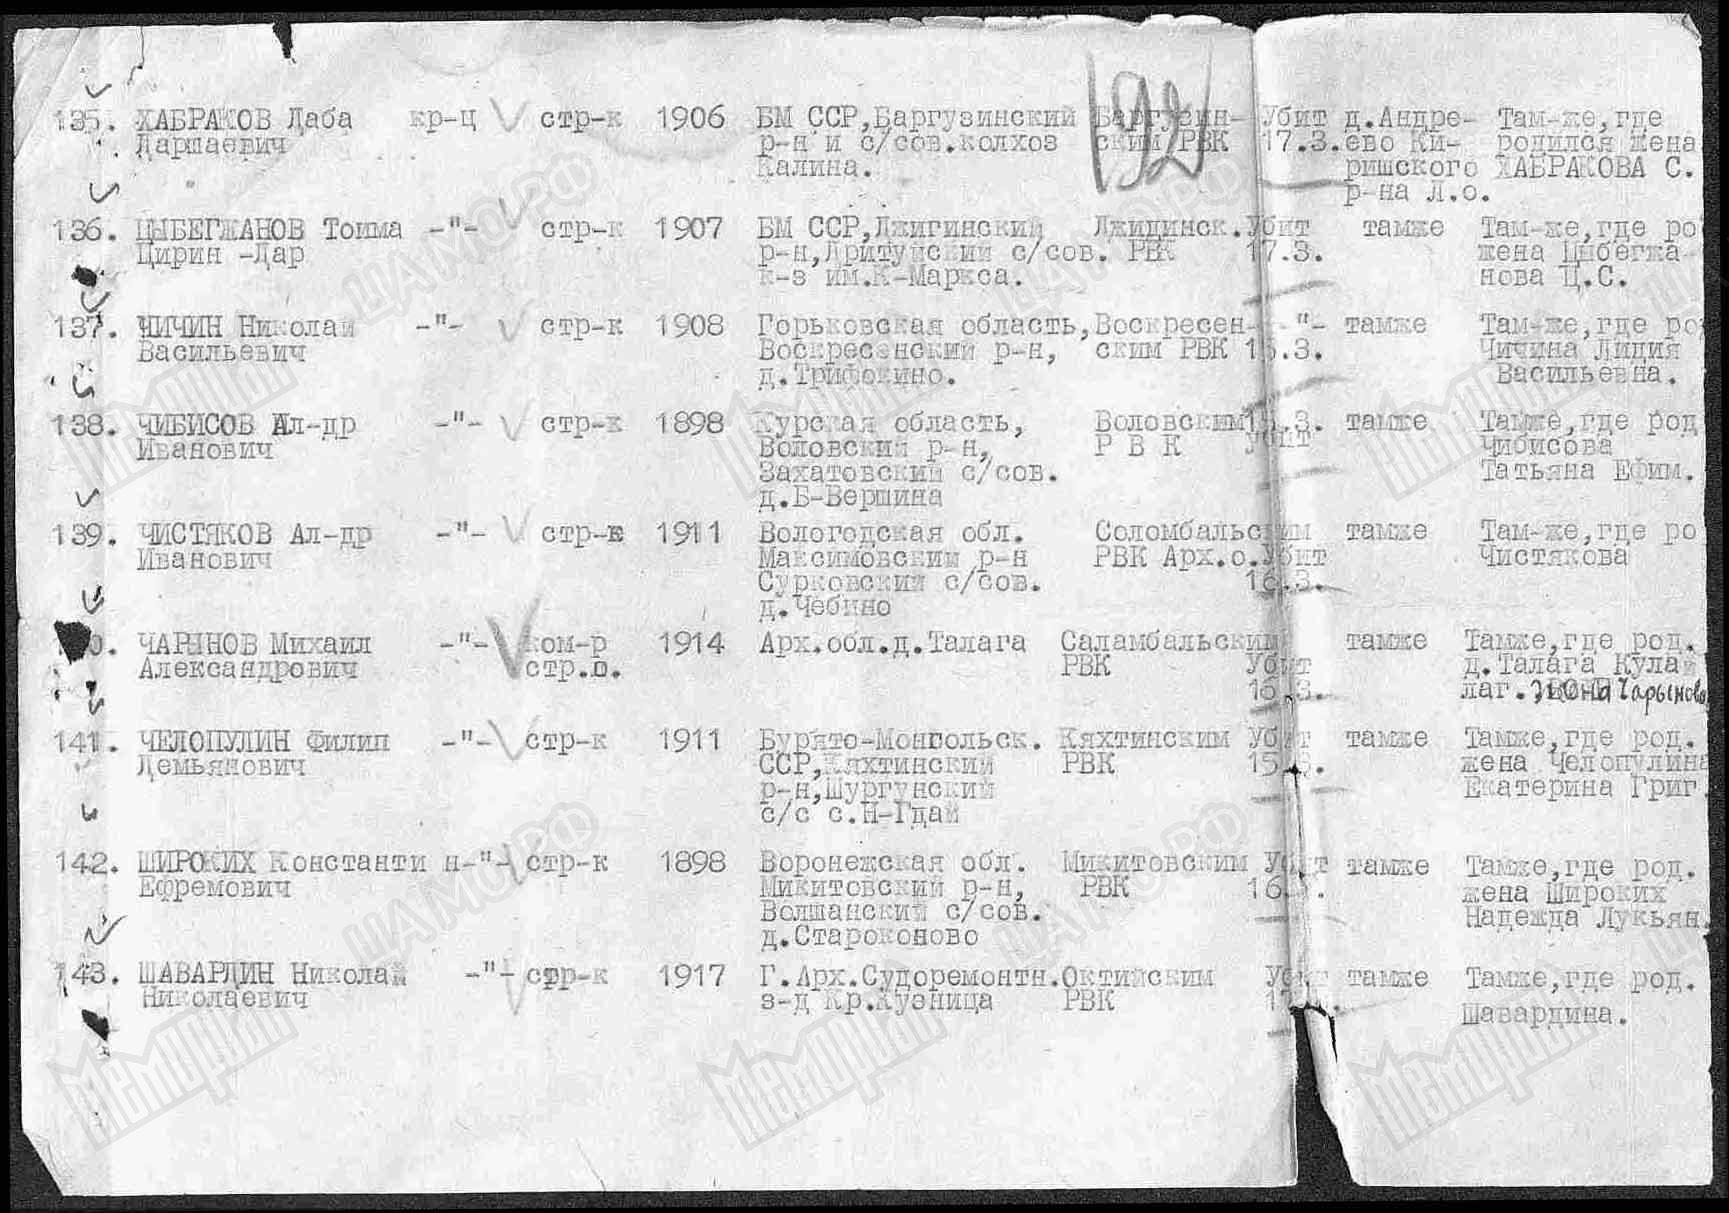 192
135. ХАБРАКОВ Даба кр-ц стр-к 1906 БМ ССР,Баргузинский Баргузин- Убит д.Андре- Там-же,где
Даршаевич р-н и с/сов.колхоз ским РВК 17.3. ево Ки- родился жена
Калина. ришского ХАБРАКОВА С.
р-на Л.о.
136. ЦЫБЕГЖАНОВ Тоима -"- стр-к 1907 БМ ССР,Джигинский Джидинск. Убит тамже Там-же,где ро
Цирин -Дар р-н,Дритуйский с/сов. РВК 17.3. жена Цыбегжа-
к-з им.К-Маркса. нова Ц.С.
137. ЧИЧИН Николай -"- стр-к 1908 Горьковская область, Воскресен- -"- тамже Там-же,где ро
Васильевич Воскресенский р-н, ским РВК 15.3. Чичина Лидия
д.Трифокино. Васильевна.
138. ЧИБИСОВ Ал-др -"- стр-к 1898 Курская область, Воловским тамже Тамже,где род
Иванович Воловский р-н, Р В К Убит Чибисова
Захатовский с/сов. Татьяна Ефим.
д.Б-Вершина
139. ЧИСТЯКОВ Ал-др -"- стр-к 1911 Вологодская обл. Соломбальским тамже Там-же,где ро
Иванович Максимовским р-н РВК Арх.о. Убит Чистякова
Сурковский с/сов. 16.3.
д.Чебино
0. ЧАРЫНОВ Михаил -"- ком-р 1914 Арх.обл.д.Талага Саламбальским тамже Тамже,где род.
Александрович стр.о. РВК Убит д.Талага Кулай
16.3. лаг. жена Чарынова
141. ЧЕЛОПУЛИН Филип -"- стр-к 1911 Бурято-Монгольск. Кяхтинским Убит тамже Тамже,где род.
Демьянович ССР,Кяхтинский РВК 15.3. жена Челопулина
р-н,Шургунский Екатерина Григ.
с/с с.Н-Гдай
142. ШИРОКИХ Константи н-"- стр-к 1898 Воронежская обл. Микитовским Убит тамже Тамже,где род.
Ефремович Микитовский р-н, РВК 16.3. жена Широких
Волшанский с/сов. Надежда Лукьян.
д.Староконово
143. ШАВАРДИН Николай -"- стр-к 1917 Г.Арх.Судоремонтн. Октийским Убит тамже Тамже,где род.
Николаевич з-д Кр.Кузница РВК Шавардина.
ЦАМО.РФ
Мемориал